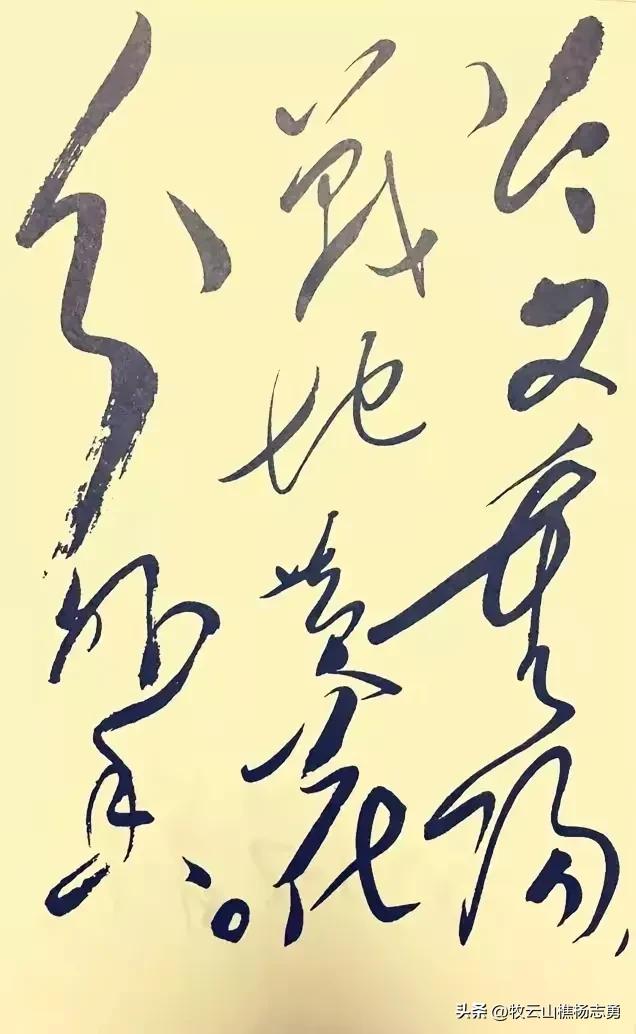 今又重陽,
戰地黄花
分外香。
头条 @牧云山樵杨志勇